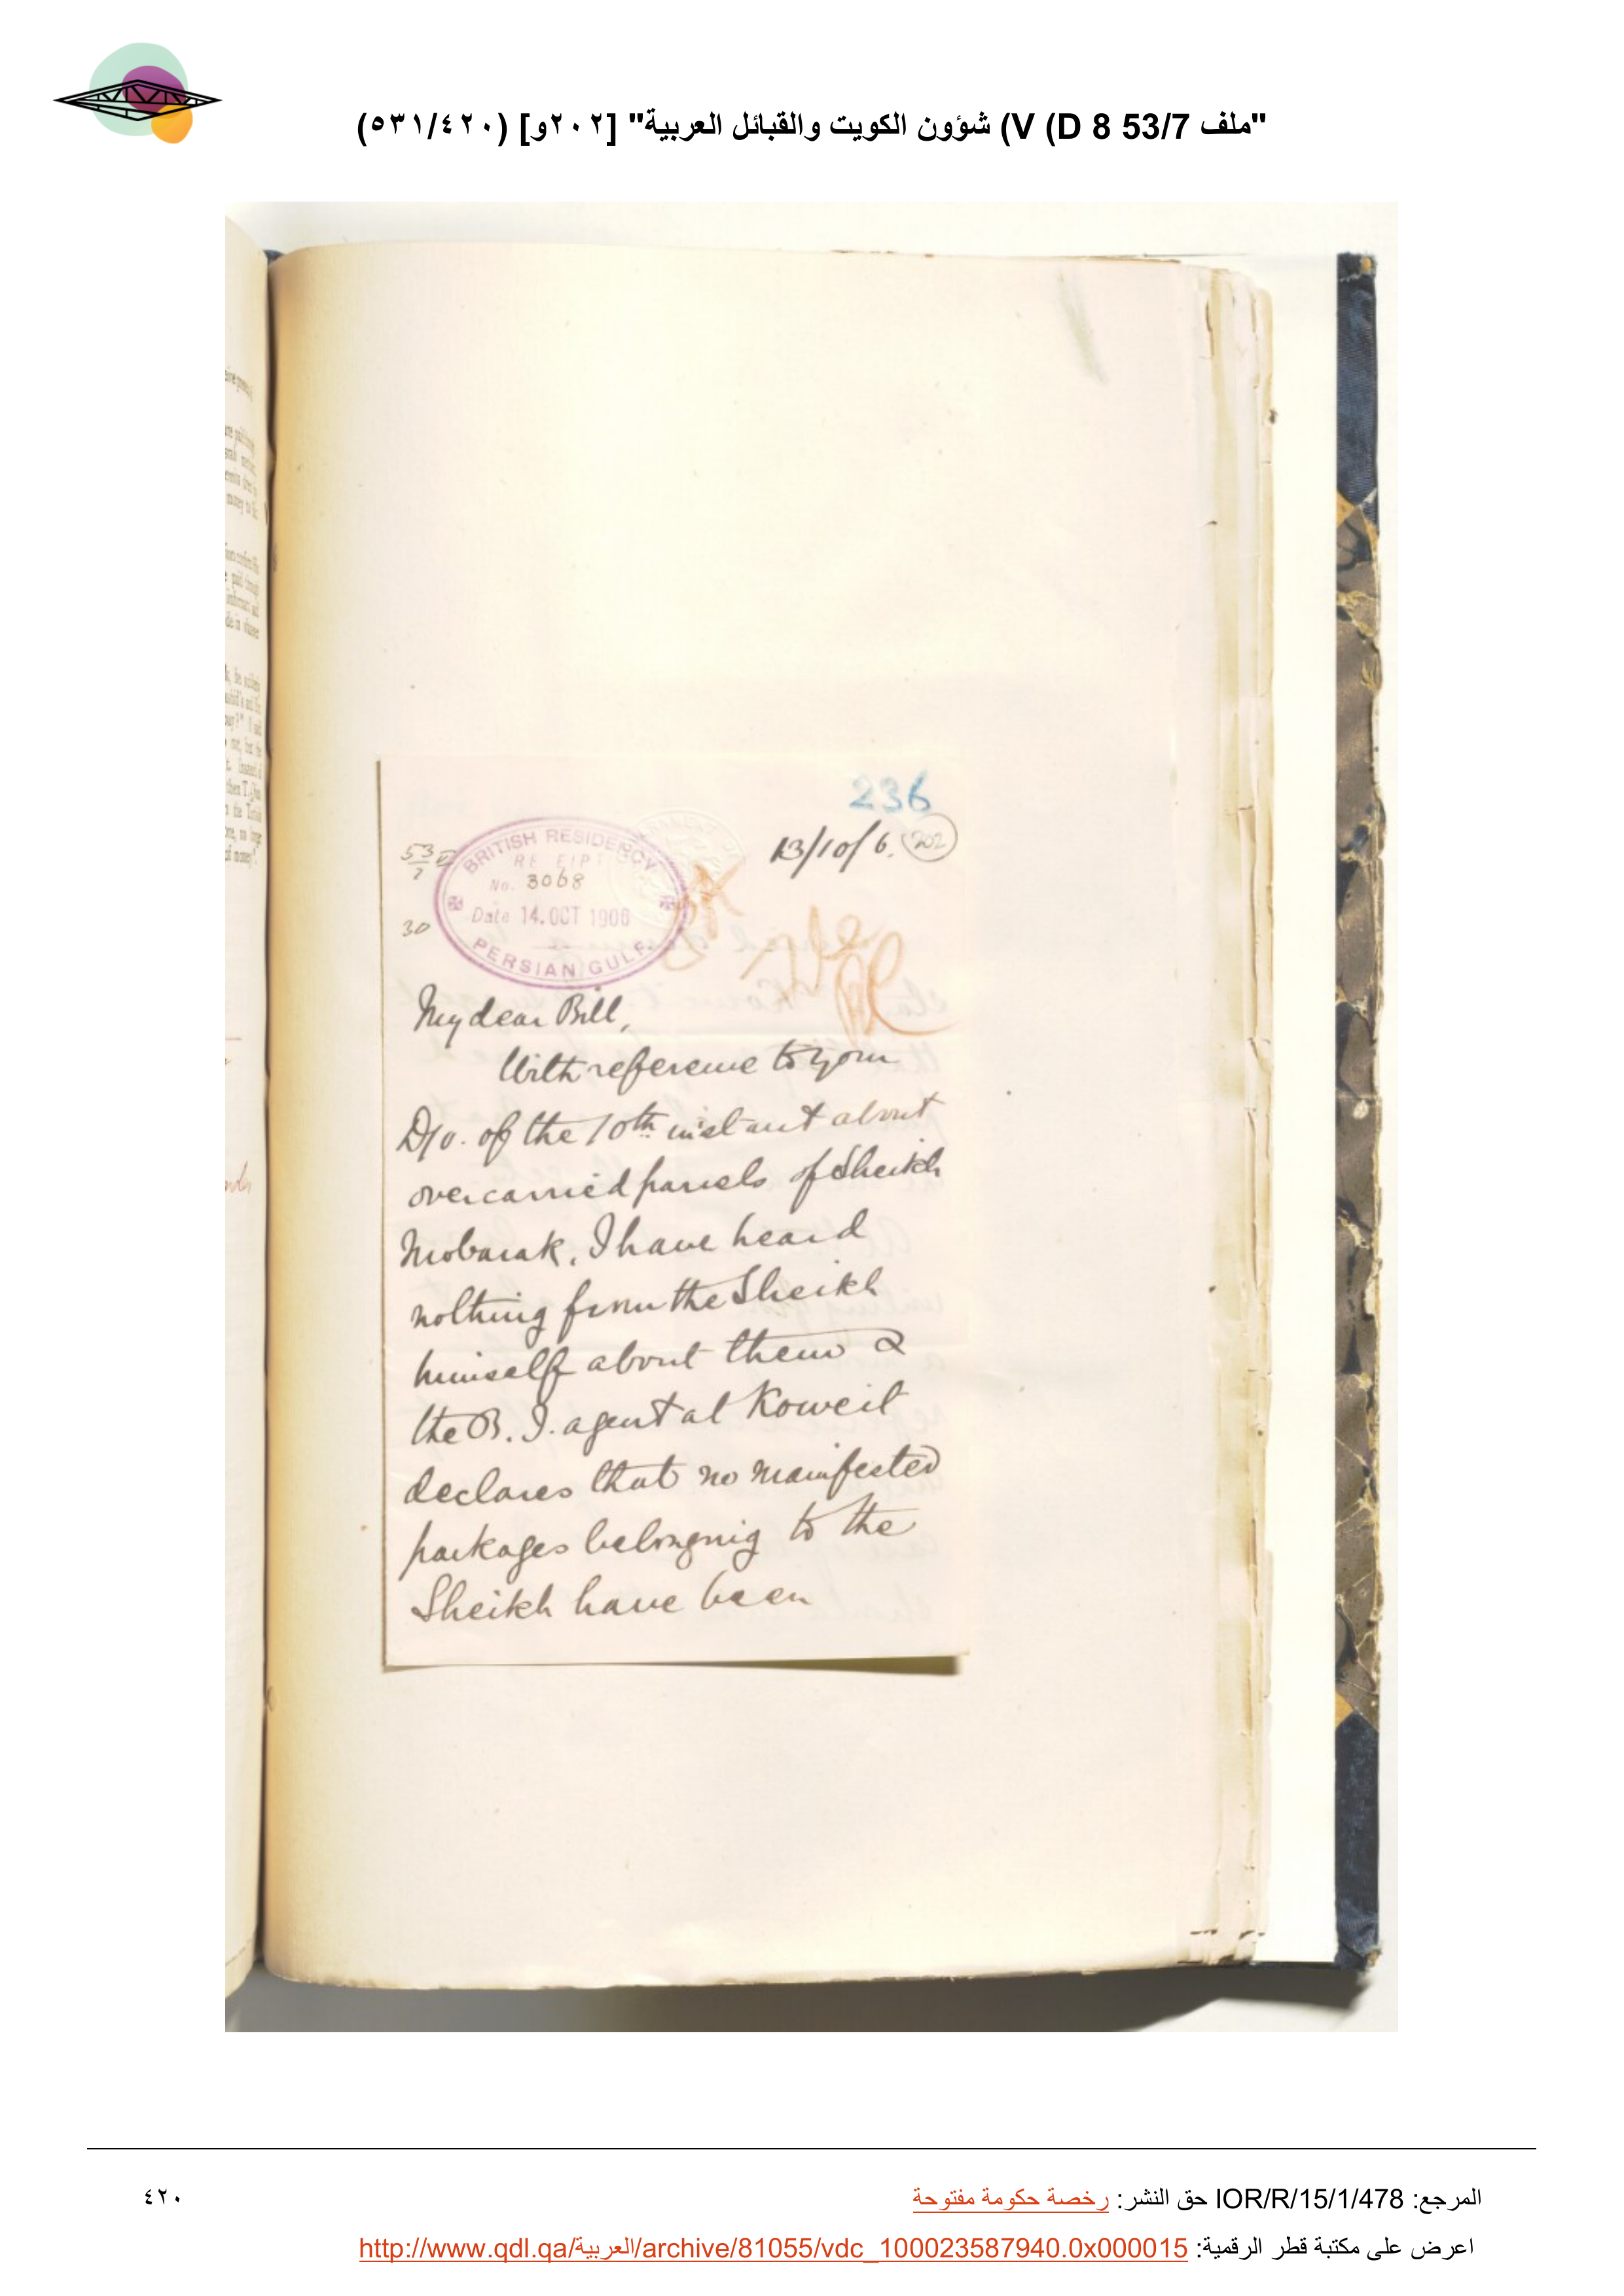 "ملف 53/7 V (D 8) شؤون الكويت والقبائل العربية" [٢٠٢و] (٥٣١/٤٢٠)
236
13/10/6.
202
53/7
30
BRITISH RESIDENCY
RECEIPT
No. 3068
Date 14. OCT 1906
PERSIAN GULF.
My dear Bill,
With reference to your
D/o. of the 10th instant about
overcarried parcels of Sheikh
Mobarak, I have heard
nothing from the Sheikh
himself about them &
the B. I. agent at Koweit
declares that no manifested
packages belonging to the
Sheikh have been
المرجع: IOR/R/15/1/478 حق النشر: رخصة حكومة مفتوحة
٤٢٠
اعرض على مكتبة قطر الرقمية: http://www.qdl.qa/العربية/archive/81055/vdc_100023587940.0x000015